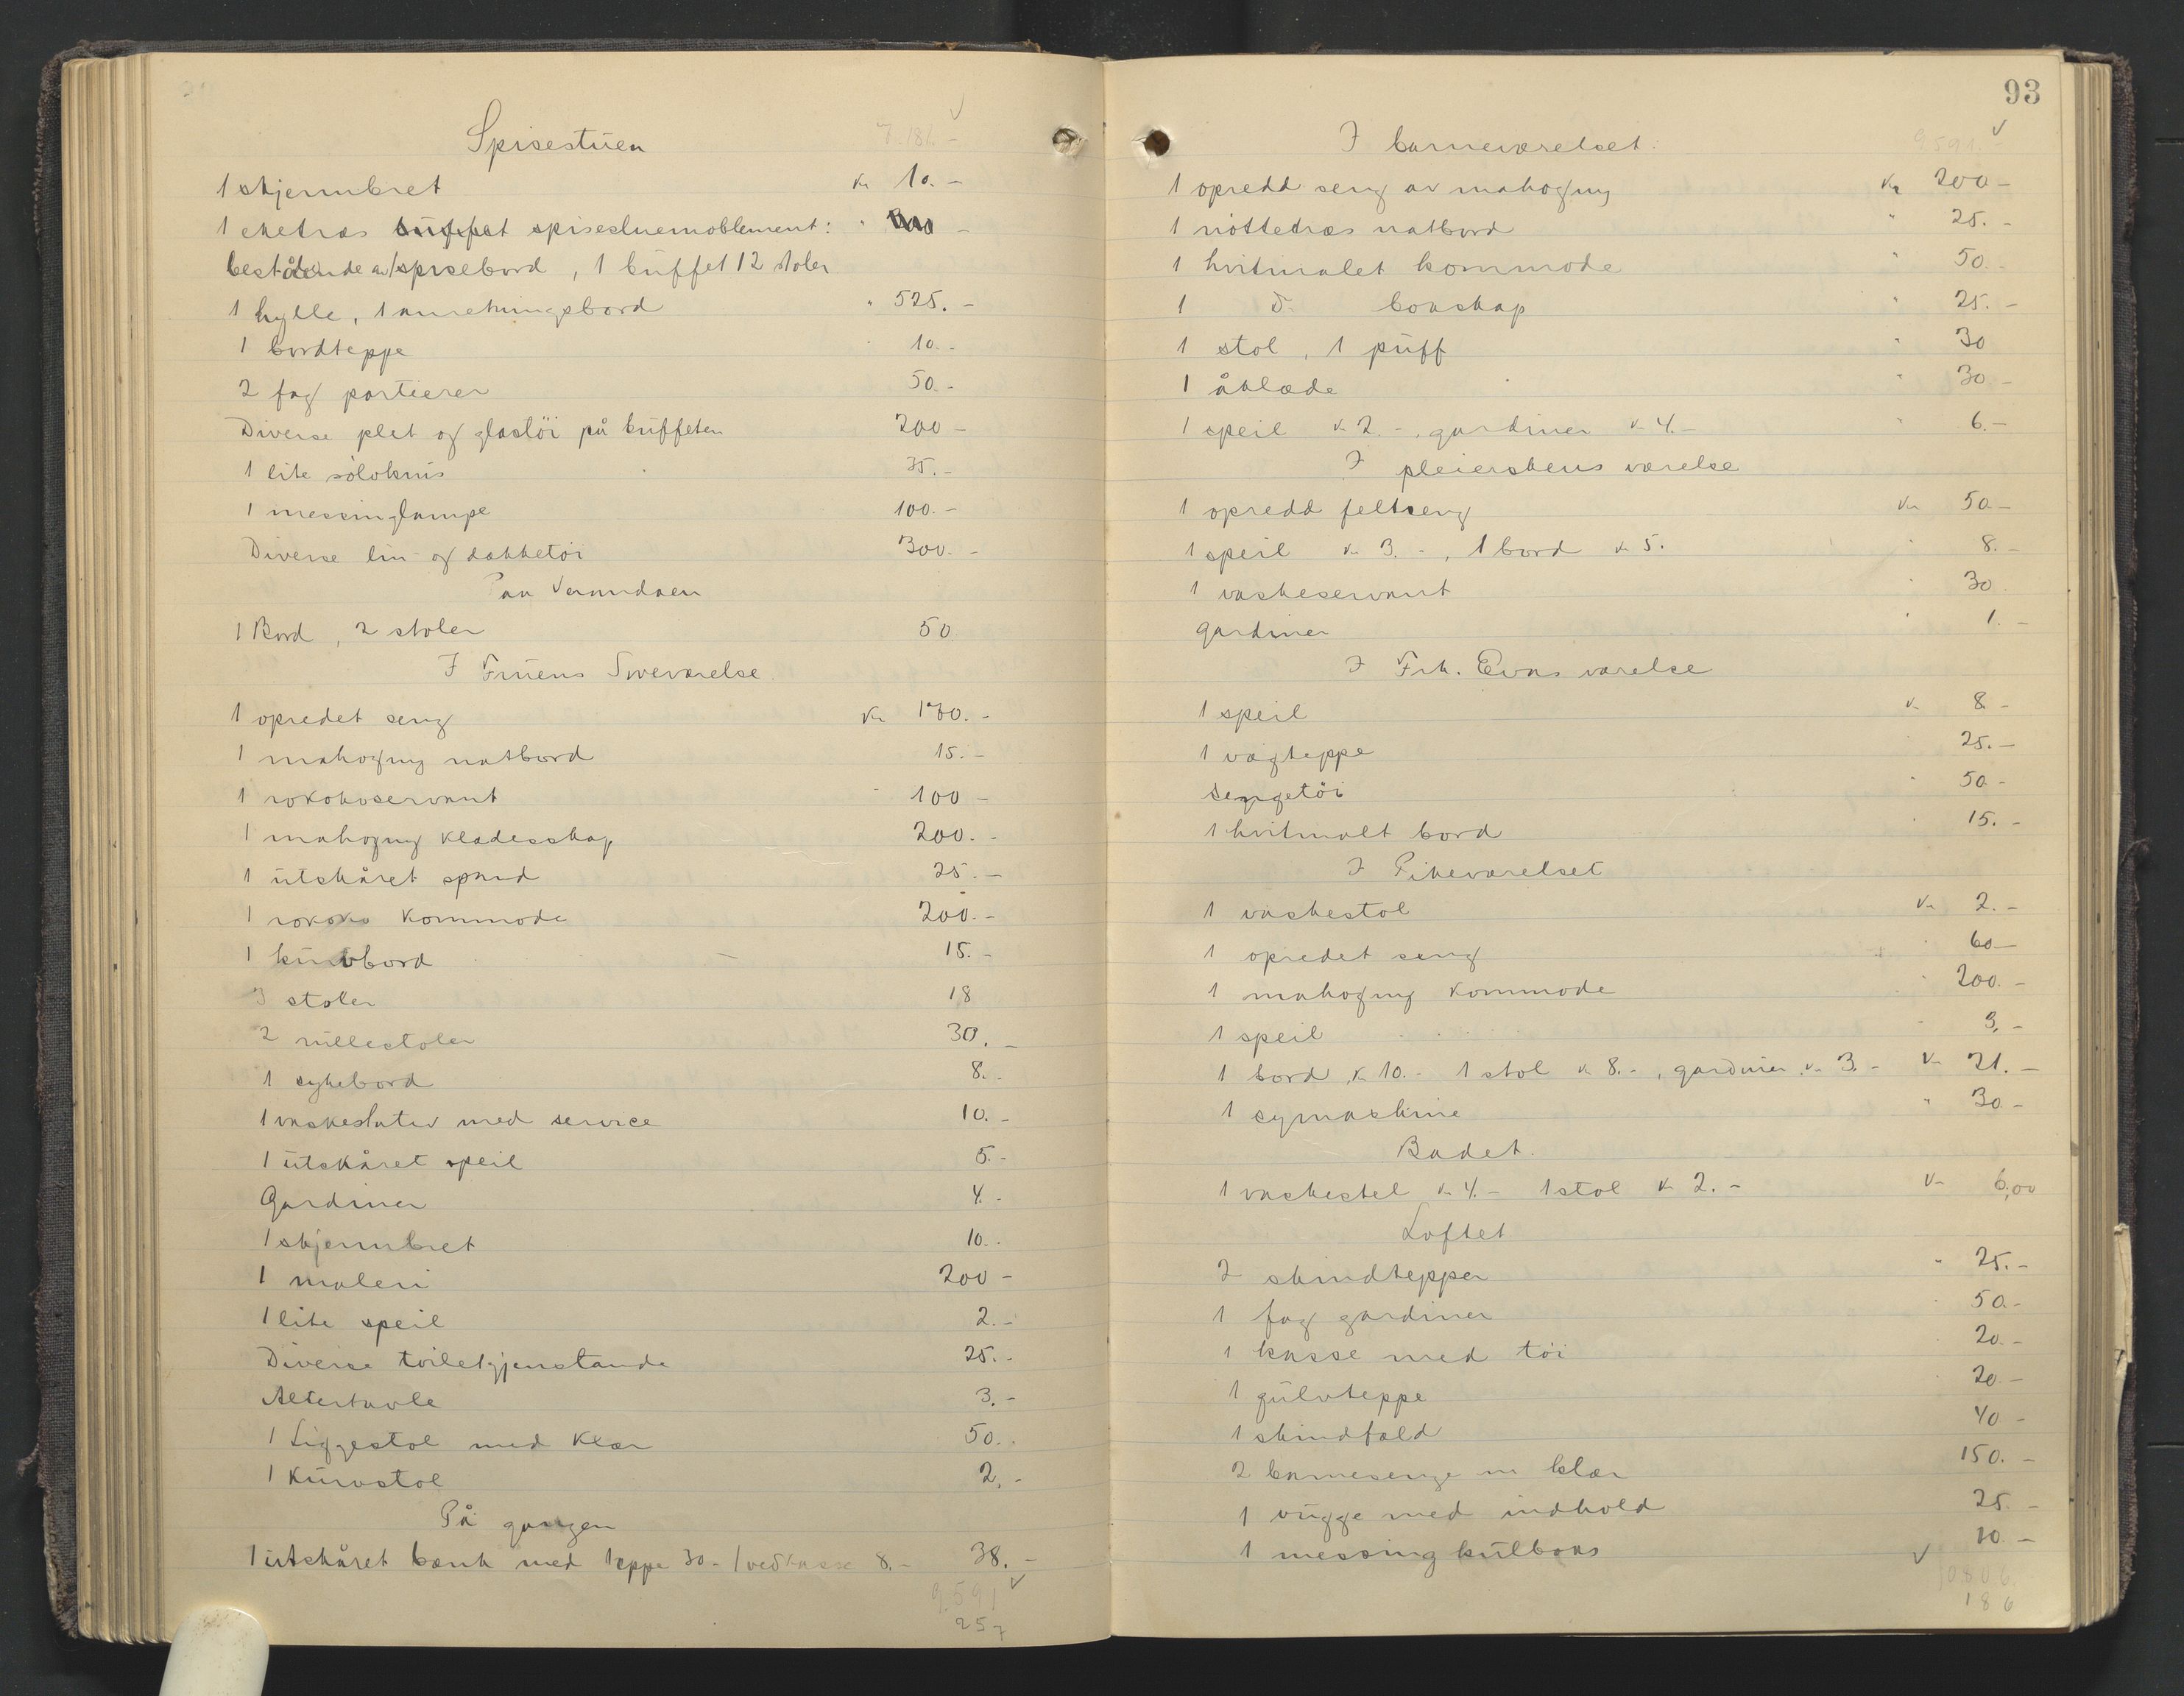 Spisestuen
1 skjermbret kr 10.-
1 eketræs buffet spisestuemøblement: "
bestående av 1 spisebord, 1 buffet 12 stoler
1 hylle, 1 anretningsbord " 525.-
1 bordteppe 10.-
2 fag portierer 50.-
Diverse plet og glastöi på buffeten 200-
1 lite sölvkrus 35.-
1 messinglampe 100.-
Diverse lin- og dækketöi 300.-
Paa Verandaen
1 Bord, 2 stoler 50
I Fruens Soveværelse
1 opredet seng kr 100.-
1 mahogny natbord 15.-
1 rokokoservant 100-
1 mahogny klædesskap 200.-
1 utskåret spand 25.-
1 rokoko kommode 200.-
1 kurvbord 15.-
3 stoler 18
2 rullestoler 30.-
1 sykebord 8.-
1 vaskestativ med service 10.-
1 utskåret speil 5.-
Gardiner 4.-
1 skjermbret 10.-
1 maleri 200-
1 lite speil 2.-
Diverse toiletgjenstande 25.-
Altertavle 3.-
1 Liggestol med klær 50.-
1 Kurvstol 2.-
På gangen
1 utskåret bænk med teppe 30.- 1 vedkasse 8.- 38.-
9.591
257
93
I barneværelset: 9591.-
1 opredd seng av mahogny kr 200-
1 nöttetræs natbord " 25.-
1 hvitmalet kommode " 50.-
1 do. bokskap " 25.-
1 stol, 1 puff " 30
1 åklæde " 30.-
1 speil kr 2.-, gardiner kr 4.- " 6.-
I pleierskens værelse
1 opredd feltseng kr 50.-
1 speil kr 3.-, 1 bord kr 5. " 8.-
1 vaskeservant " 30.
gardiner " 1.-
I Frk. Evas værelse
1 speil kr 8-
1 vægteppe 25.-
sengetöi " 50-
1 hvitmalt bord " 15.-
I Pikeværelset
1 vaskestol kr 2.-
1 opredet seng " 60-
1 mahogny kommode " 200.-
1 speil " 3.-
1 bord kr 10.- 1 stol kr 8.-, gardiner kr 3.- kr 21.-
1 symaskine " 30-
Badet.
1 vaskestel kr 4.- 1 stol kr 2.- kr 6,00
Loftet
2 skindtepper " 25.-
1 fag gardiner " 50.-
1 kasse med töi 20.-
1 gulvteppe 20-
1 skindfæld 40-
2 barnesenge m klær 150.-
1 vugge med indhold 25.-
1 messing kulboks 10.-
10806.
186